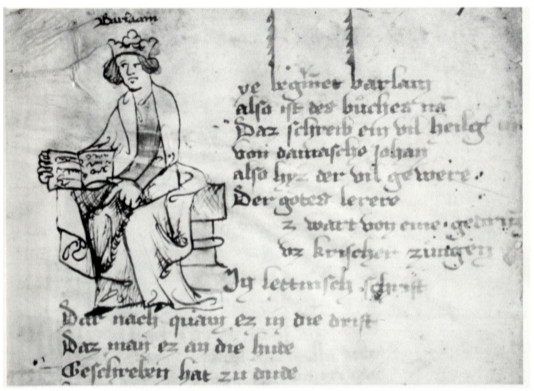 Barlaam
ye begīnet barlam
also ist des buches nā
Daz schreib ein vil heilg
von damascho Johan
also hyz der vil gewere.
Der gotes lerere
z wart von eine gedruͤ
vz krischer zungen
In lettinisch schrift
Dar nach quam ez in die drift
Daz man ez an die hute
Geschreben hat zu dude